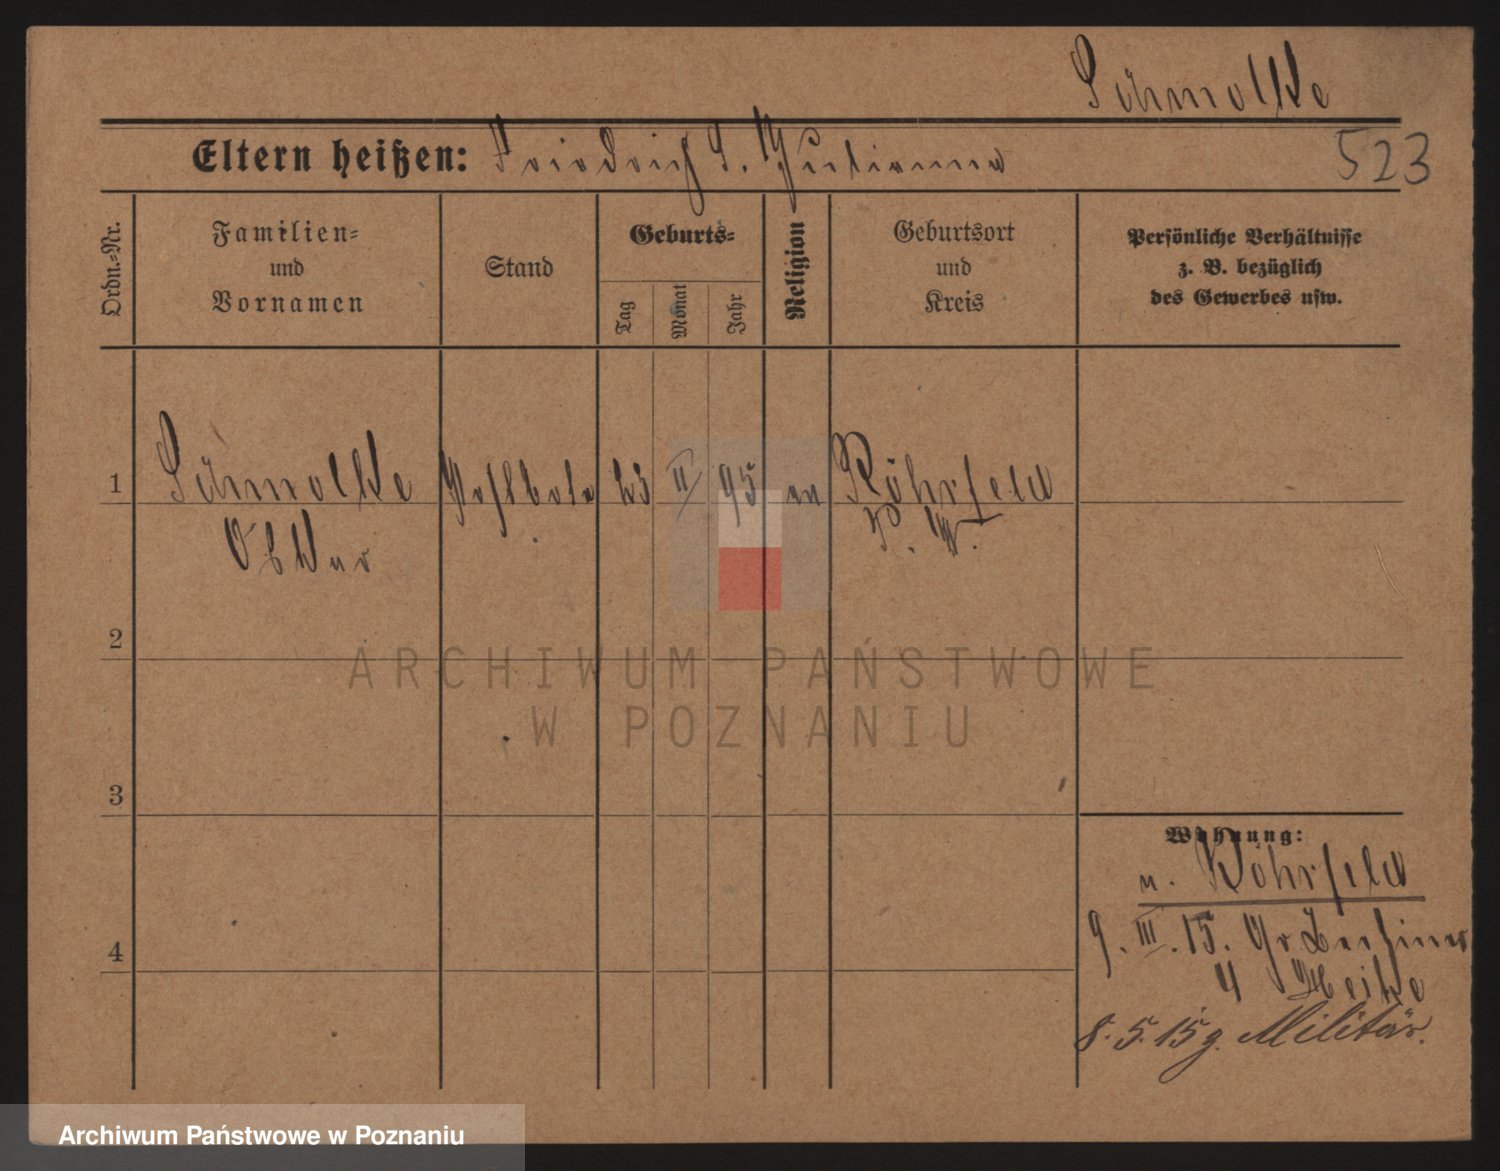 Schmolke
Eltern heißen: Friedrich u. Julianna
523
Ordn.-Nr.
Familien-
und
Vornamen
Stand
Geburts-
Tag
Monat
Jahr
Religion
Geburtsort
und
Kreis
Persönliche Verhältnisse
z. B. bezüglich
des Gewerbes usw.
1
Schmolke
Oskar
II
95
Röhrfeld
P. W.
2
ARCHIWUM PAŃSTWOWE
W POZNANIU
3
Wohnung:
Röhrfeld
9. III. 15. Gr. Berliner
4
4
8. 5. 15 g. Militär.
Archiwum Państwowe w Poznaniu